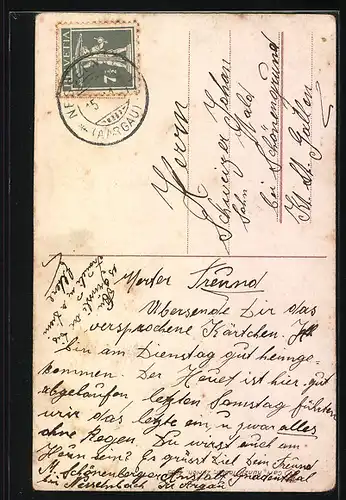 HELVETIA
7½
(AARGAU)
Herrn
Schweizer Johan
Sohn Wald
bei Schönengrund
Kt. St. Gallen
Werter Freund
Übersende Dir das
versprochene Kärtchen. Ich
bin am Dienstag gut heimge-
kommen. Der Heuet ist hier gut
abgelaufen, letzten Samstag führten
wir das letzte ein, u. zwar alles
ohne Regen. Du wirst auch am
Heuen sein? Es grüsst Dich Dein Freund
A. Schönenberger Anstalt Gnadenthal
bei Nesselnbach Kt. Argau